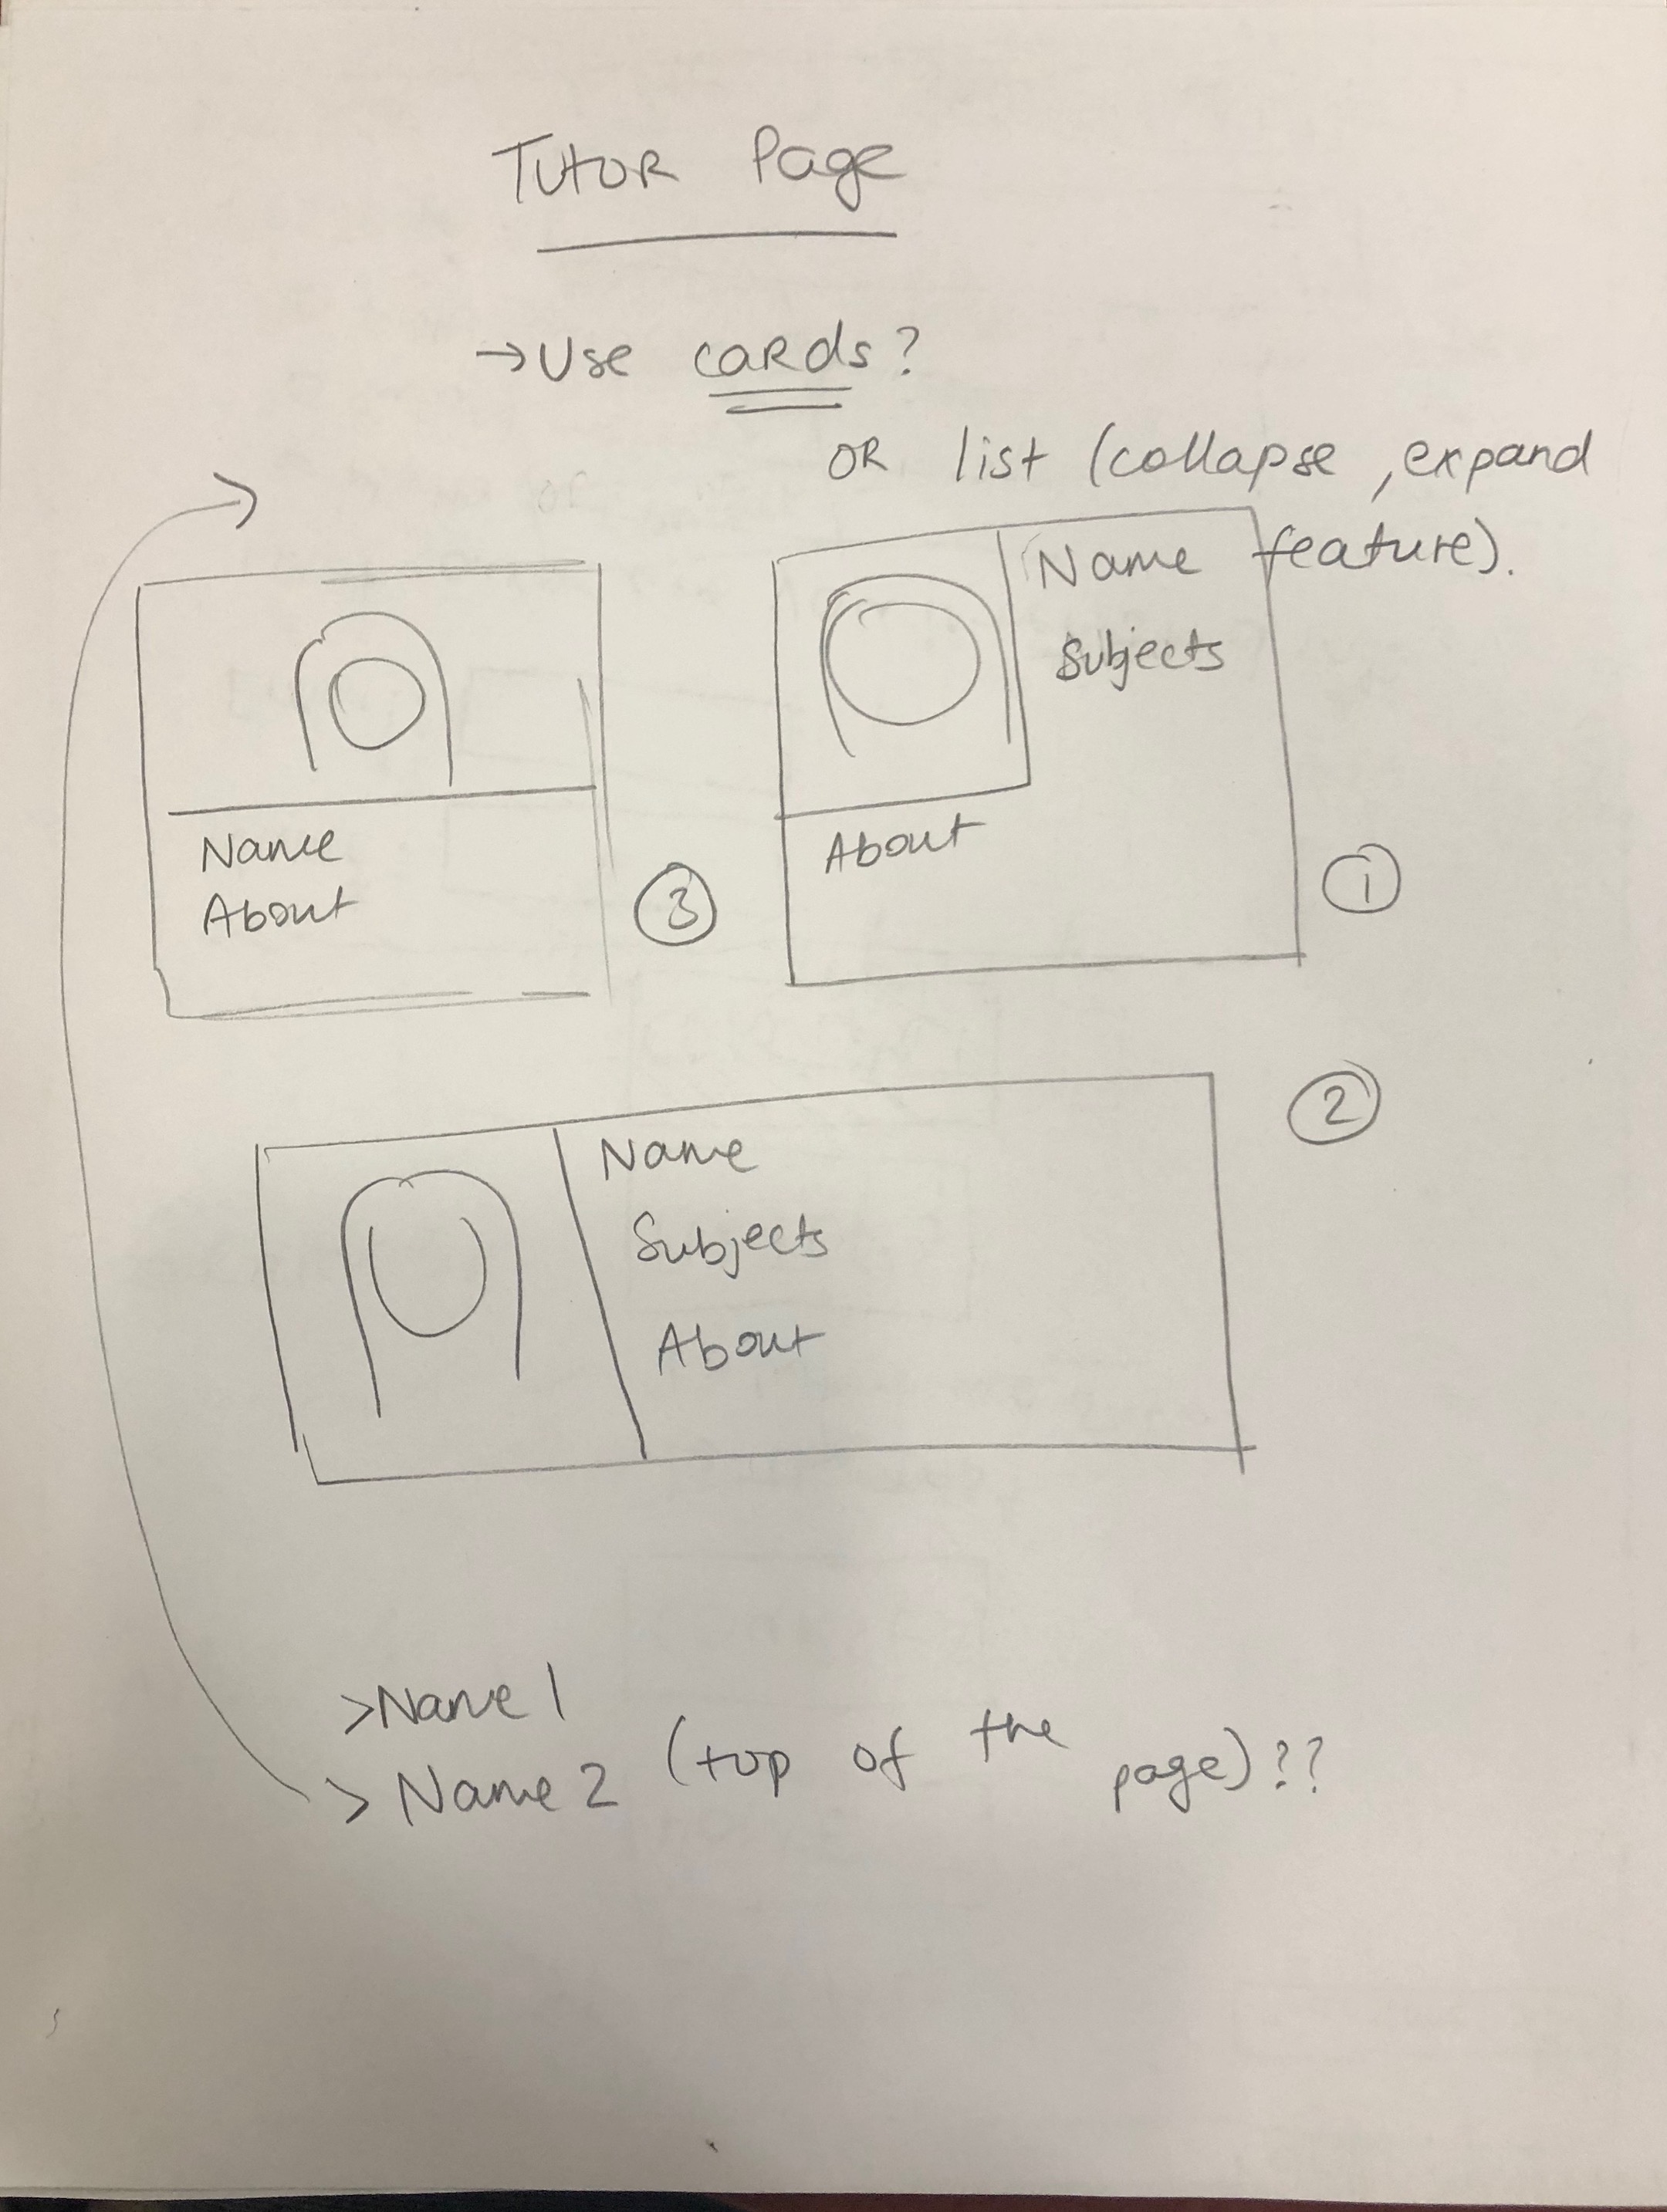 TUTOR Page
→ Use cards?
OR list (collapse, expand
feature).
Name
About
3
Name
Subjects
About
1
2
Name
Subjects
About
>Name 1
> Name 2 (top of the page)??